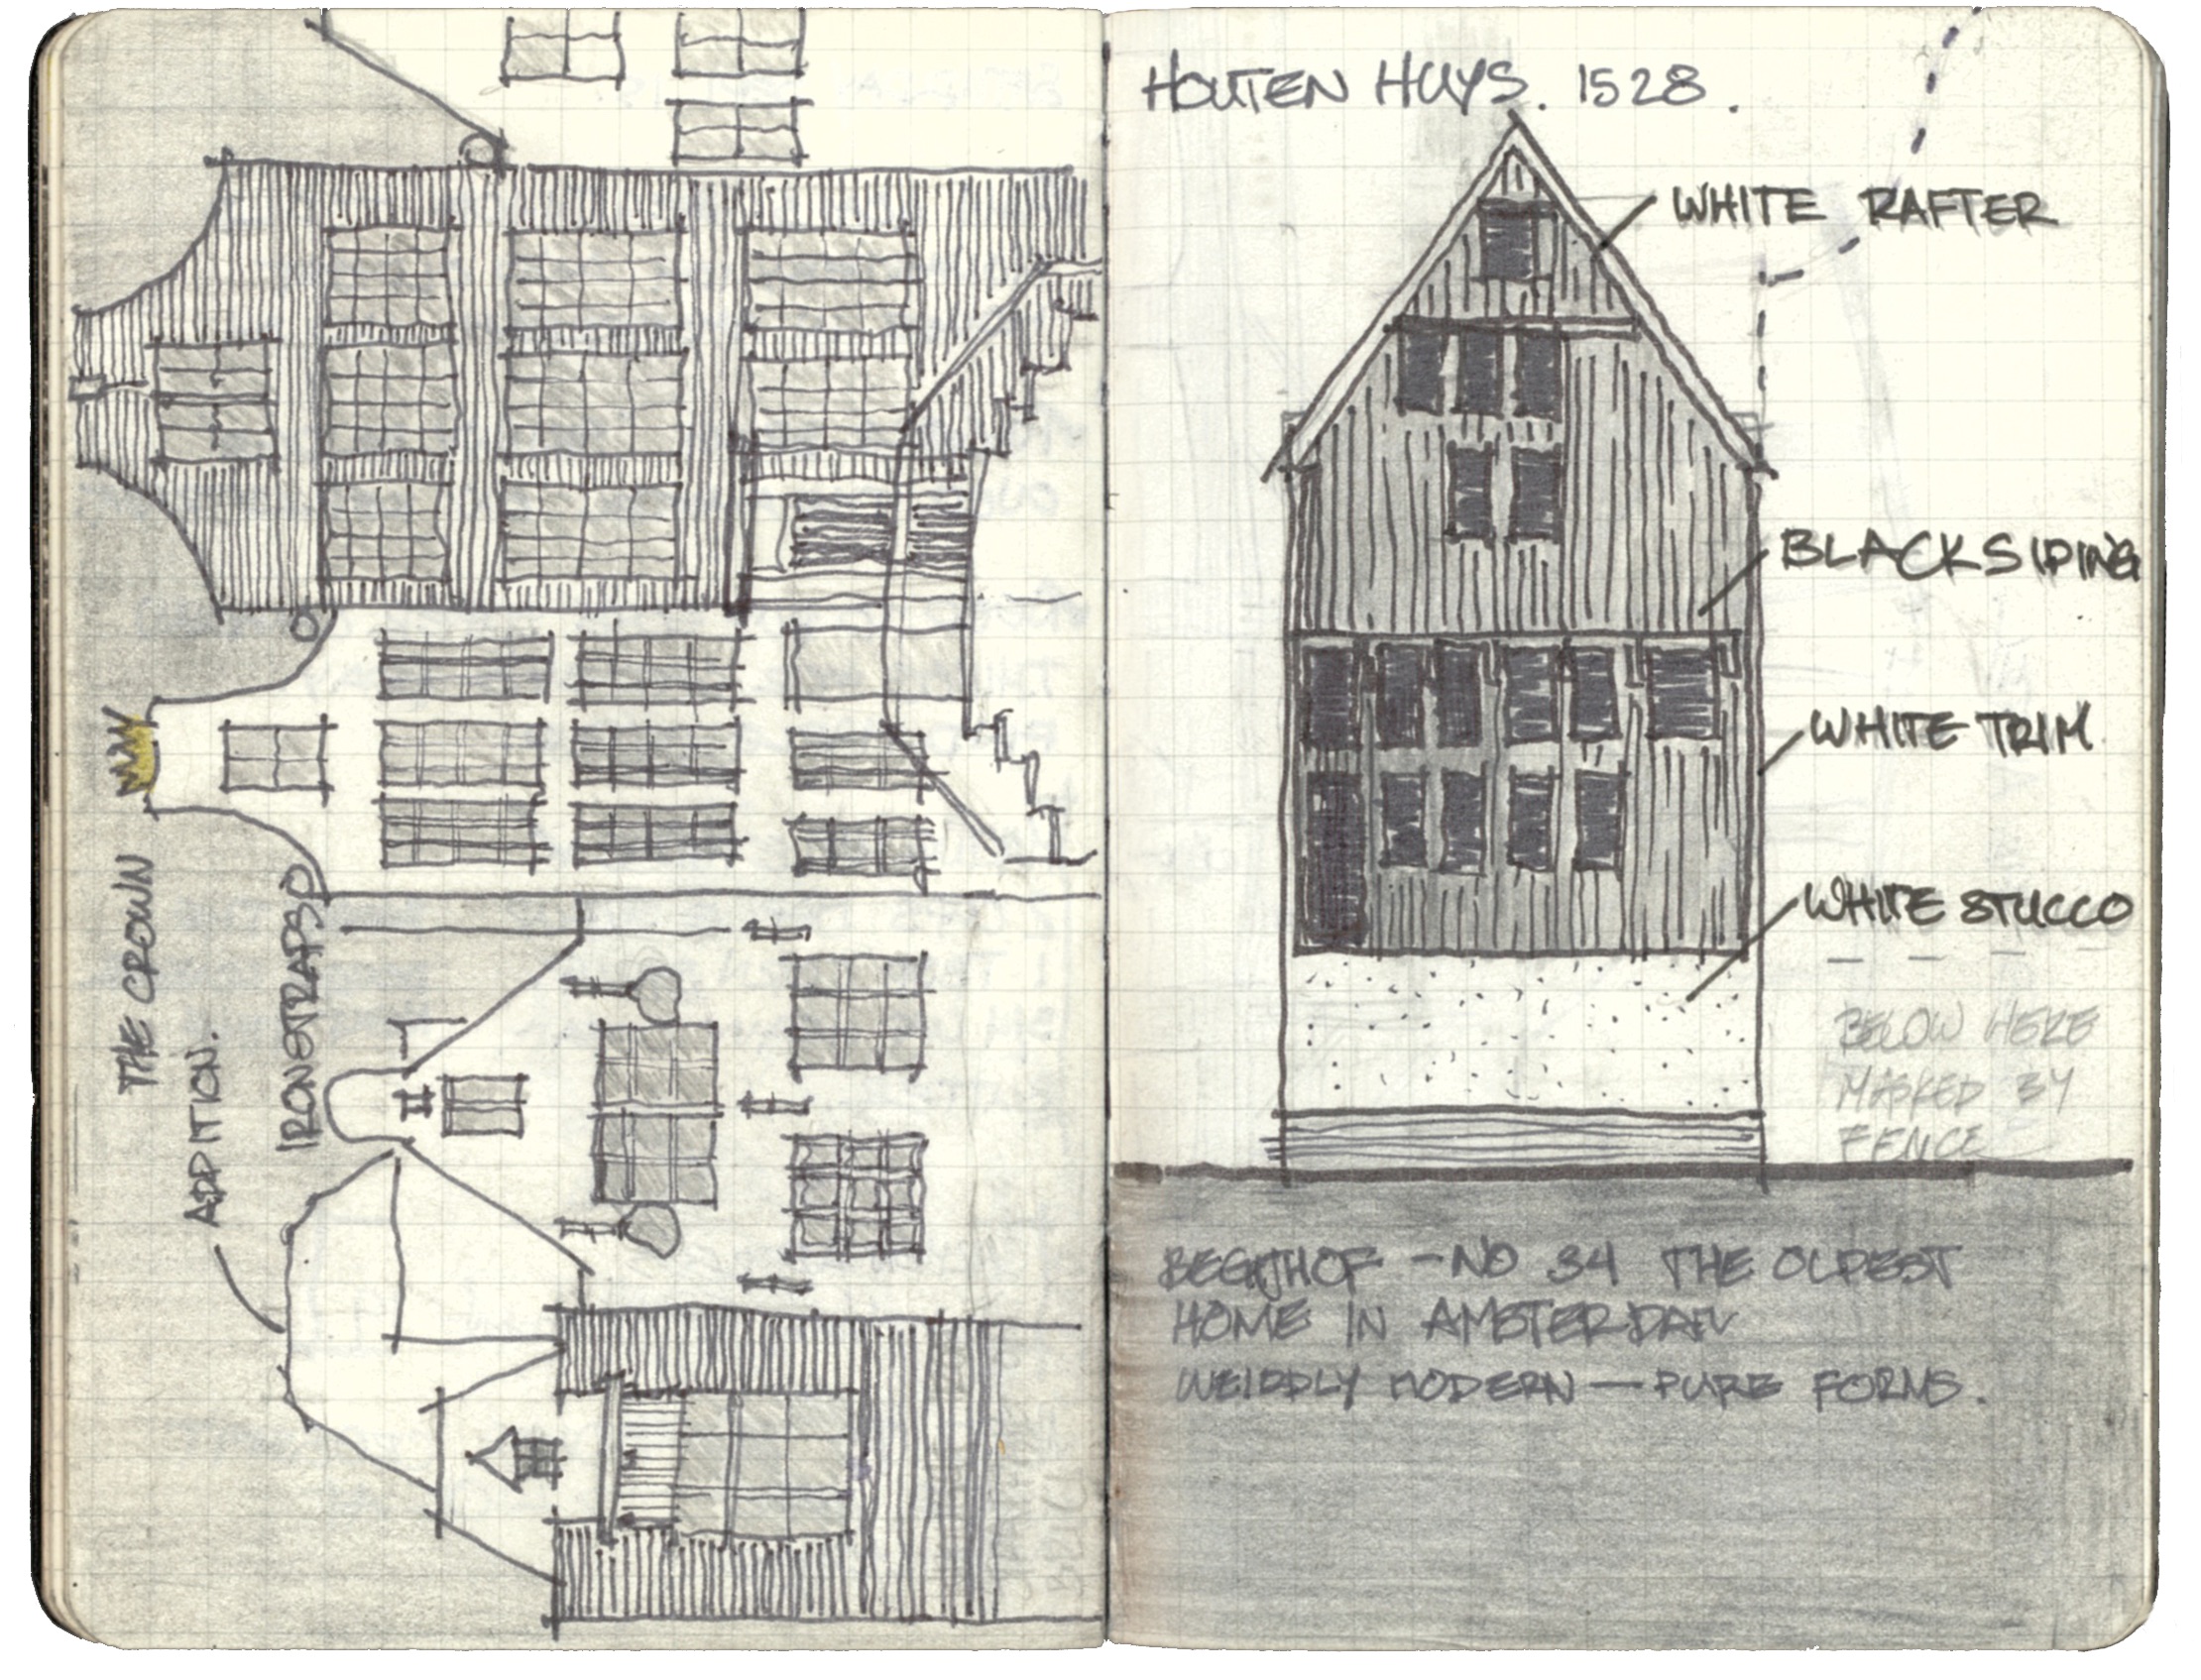 THE CROWN
ADDITION.
IRONSTRAPS
HOUTEN HUYS. 1528.
WHITE RAFTER
BLACK SIDING
WHITE TRIM
WHITE STUCCO
BELOW HERE
MASKED BY
FENCE
BEGIJHOF - NO 34 THE OLDEST
HOME IN AMSTERDAM
WEIRDLY MODERN — PURE FORMS.